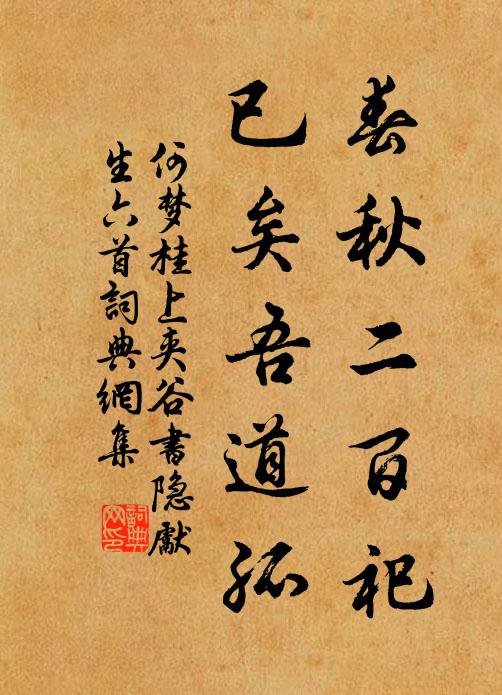 春秋二百祀
已矣吾道孤
何梦桂上夹谷書隐獻
生六首詞典網集
詞典网印